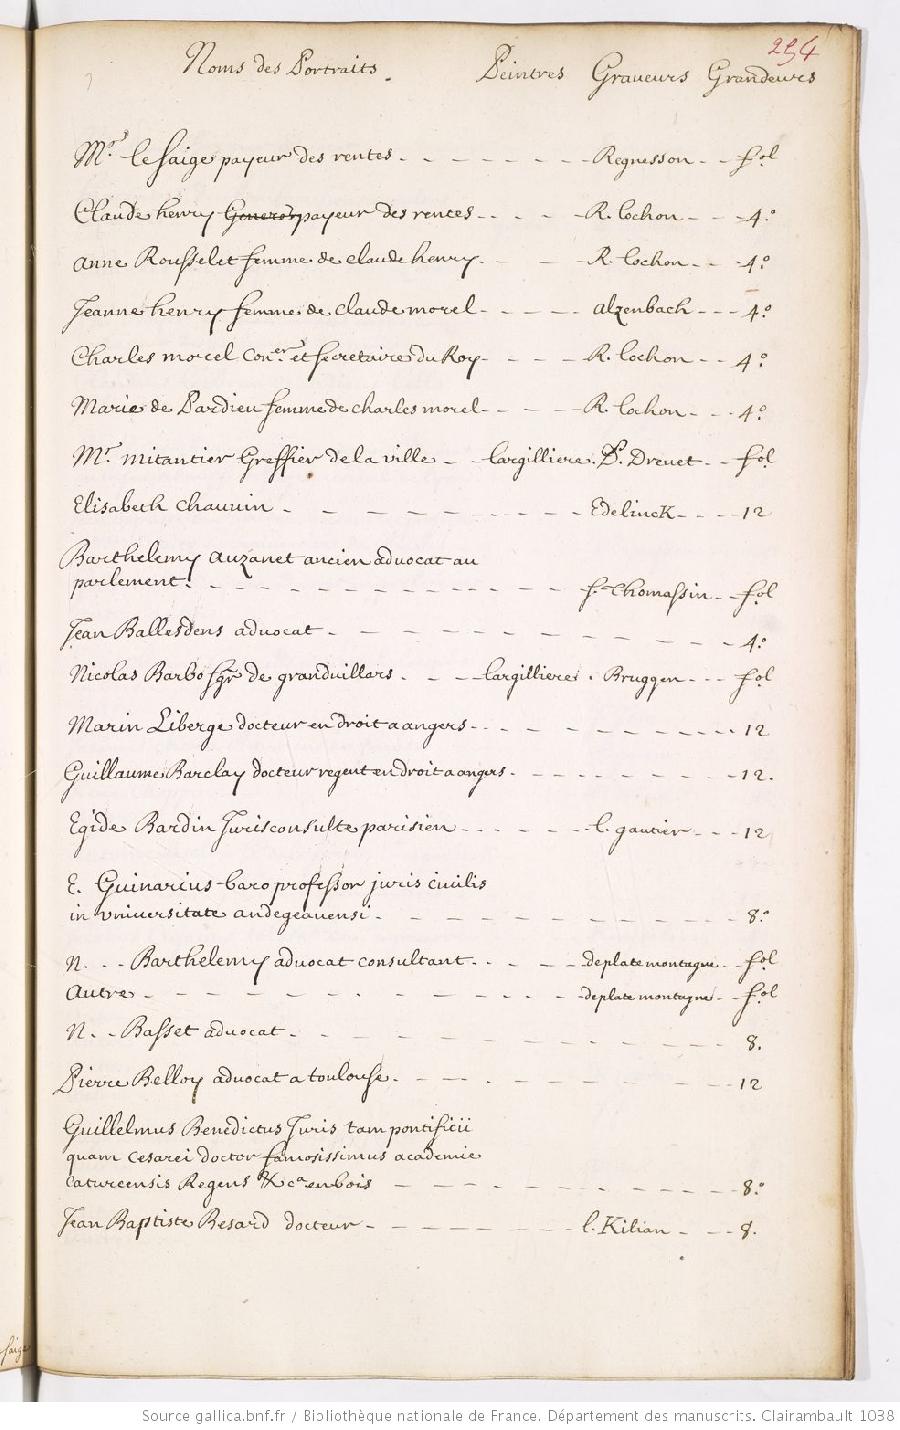 254
Noms des Portraits. Peintres Graueurs Grandeurs
Mr. le faige payeur des rentes. - - - - - - Regnesson - - fol
Claude henry payeur des rentes - - - - R. Lochon - - - 4.o
anne Rousselet femme de claude henry. - - - R. Lochon - - - 4.o
Jeanne henry femme de claude morel - - - - - alzenbach - - - 4.o
Charles morel coner. et secretaire du Roy - - - - R. Lochon - - 4.o
Marie de Pardieu femme de charles morel - - - - R. Lochon - - - 4.o
Mr. mitantier Greffier de la ville - largilliere. P. Drevet - - fol
Elisabeth chauuin - - - - - - - Edelinck - - - - 12
Barthelemy auzanet ancien advocat au
parlement. - - - - - - - - - - - - f.t thomassin - - fol
Jean Ballesdens advocat - - - - - - - - - - - - 4.o
Nicolas Barbo sgr de granduillars. - - - largilliere. Bruggen - - - fol
Marin Liberge docteur en droit a angers - - - - - - - - - 12
Guillaume Barclay docteur regent en droit a angers - - - - - - - 12.
Egide Bardin Jurisconsulte parisien - - - - - l. gautier - - - 12
E. Guinarius-baro professor juris ciuilis
in vniuersitate andegauensi. - - - - - - - - - - 8.o
N. . . Barthelemy advocat consultant - - - - deplatemontagne - - fol
autre - - - - - - - - - - deplatemontagne - - fol
N. . - Basset advocat - - - - - - - - - - - - 8.
Pierre Belloy advocat a toulouse. - - - - - - - - - - 12
Guillelmus Benedictus Juris tam pontificii
quam cesarei doctor famosissimus academie
caturcensis Regens &ca en bois - - - - - - - - - - 8.o
Jean Baptiste Besard docteur - - - - - - - l. Kilian - - - 8.
faige
Source gallica.bnf.fr / Bibliothèque nationale de France. Département des manuscrits. Clairambault 1038